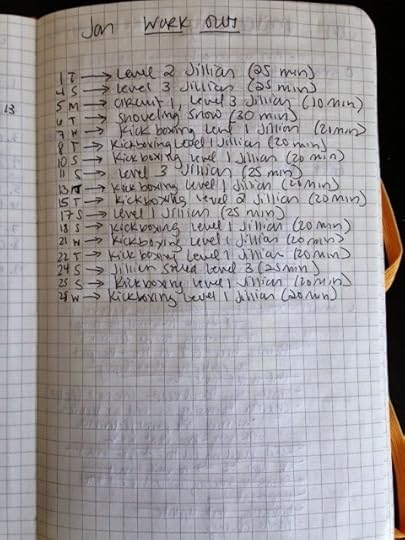 Jan Work Out
13
1 T → Level 2 Jillian (25 min)
4 S → Level 3 Jillian (25 min)
5 M → circuit 1, Level 3 Jillian (10 min)
6 T → Shoveling Snow (30 min)
7 W → Kickboxing Level 1 Jillian (20 min)
8 T → Kickboxing Level 1 Jillian (20 min)
10 S → Kickboxing Level 1 Jillian (20 min)
11 S → Level 3 Jillian (25 min)
13 T → Kickboxing Level 1 Jillian (20 min)
15 T → Kickboxing Level 2 Jillian (20 min)
17 S → Level 1 Jillian (25 min)
18 S → Kickboxing Level 1 Jillian (20 min)
21 W → Kickboxing Level 1 Jillian (20 min)
22 T → Kickboxing Level 1 Jillian (20 min)
24 S → Jillian Level 3 (25 min)
25 S → Kickboxing Level 1 Jillian (20 min)
28 W → Kickboxing Level 1 Jillian (20 min)